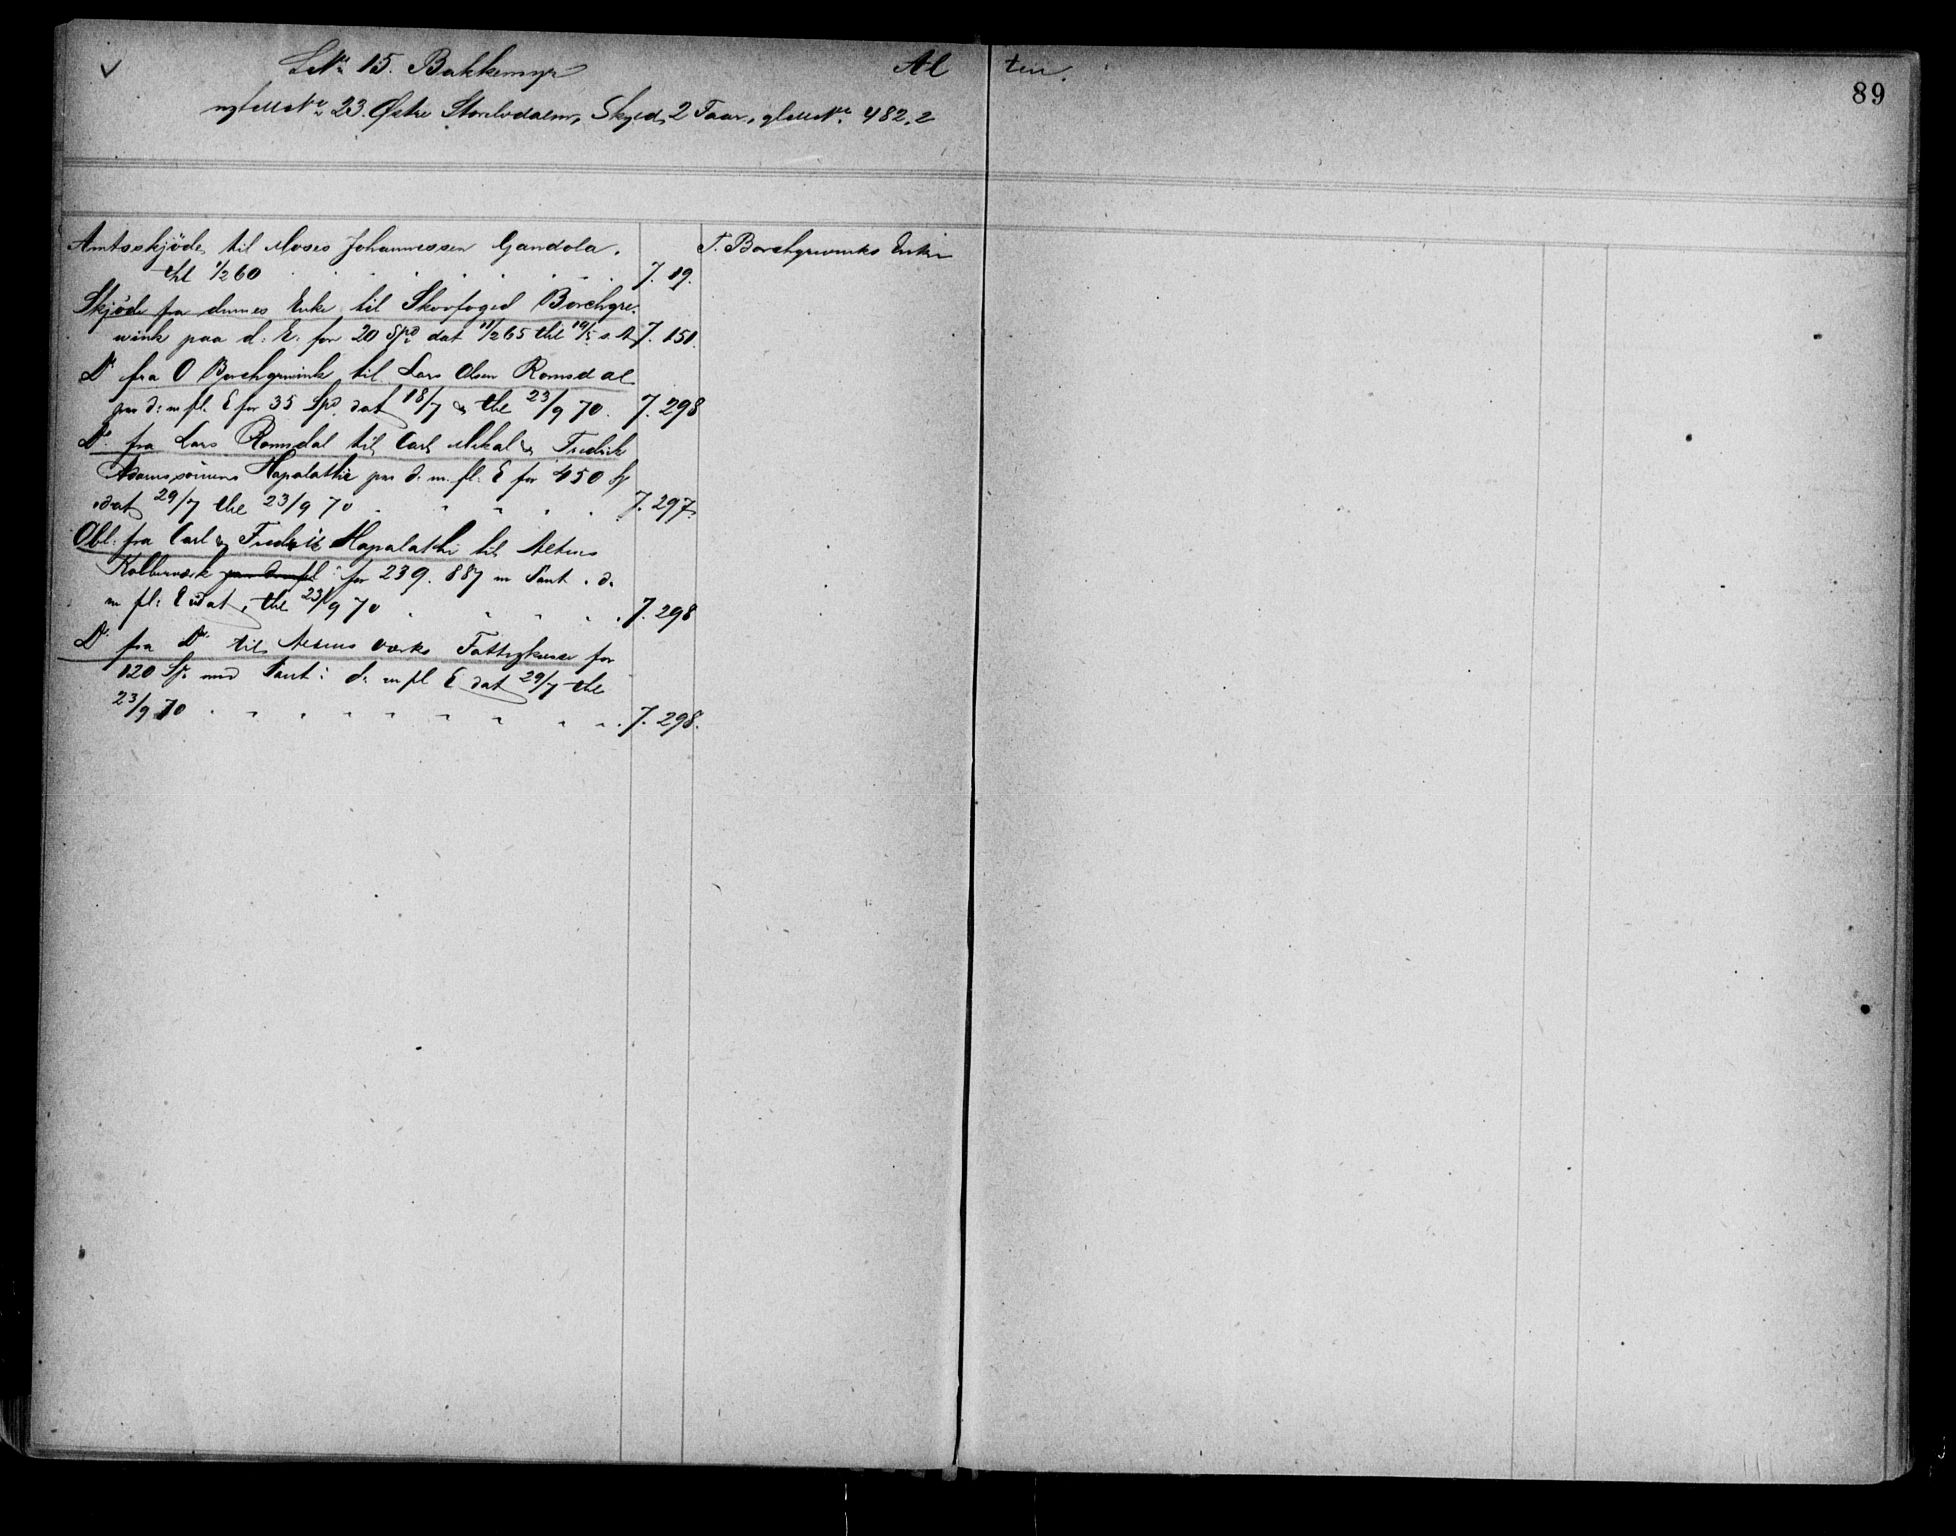 LNo 15. Bakkemyr Al ten.
89
No 23. Østre Storelvdalen, Skyld, 2 Taar., glMtNo 482.2
Amtsskjöde til Moses Johannessen Gandola.
thl 1/2 60 7. 19.
T. Borchgrevinks Enke
Skjöde fra dennes Enke til Skovfoged Borchgre-
wink paa d: E: for 20 Spd dat 11/2 65 thl s. A 7. 151.
Do fra O Borchgrevink til Lars Olsen Romsdal
paa d: m fl. E for 35 Spd. dat 18/7 & thl 23/9 70. 7. 298
Do. fra Lars Romsdal til Carl Mikal & Fredrik
Adamssönnens Hapalathi paa d. m. fl. E for 450 Sp
dat 29/7 thl 23/9 70 7. 297.
Obl: fra Carl & Fredrik Hapalathi til Altens
Kobberværk paa d m fl for 239. 887 m Pant i d.
m fl: E dat, thl 23/9 70 7. 298
Do. fra Do. til Altens Værks Fattigkasse for
120 Sp. med Pant i d: m fl E dat 29/7 thl
23/9 70 7. 298.